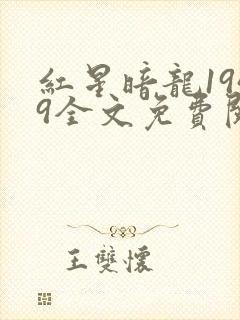 紅星暗龍19
9全文免費
王雙懷